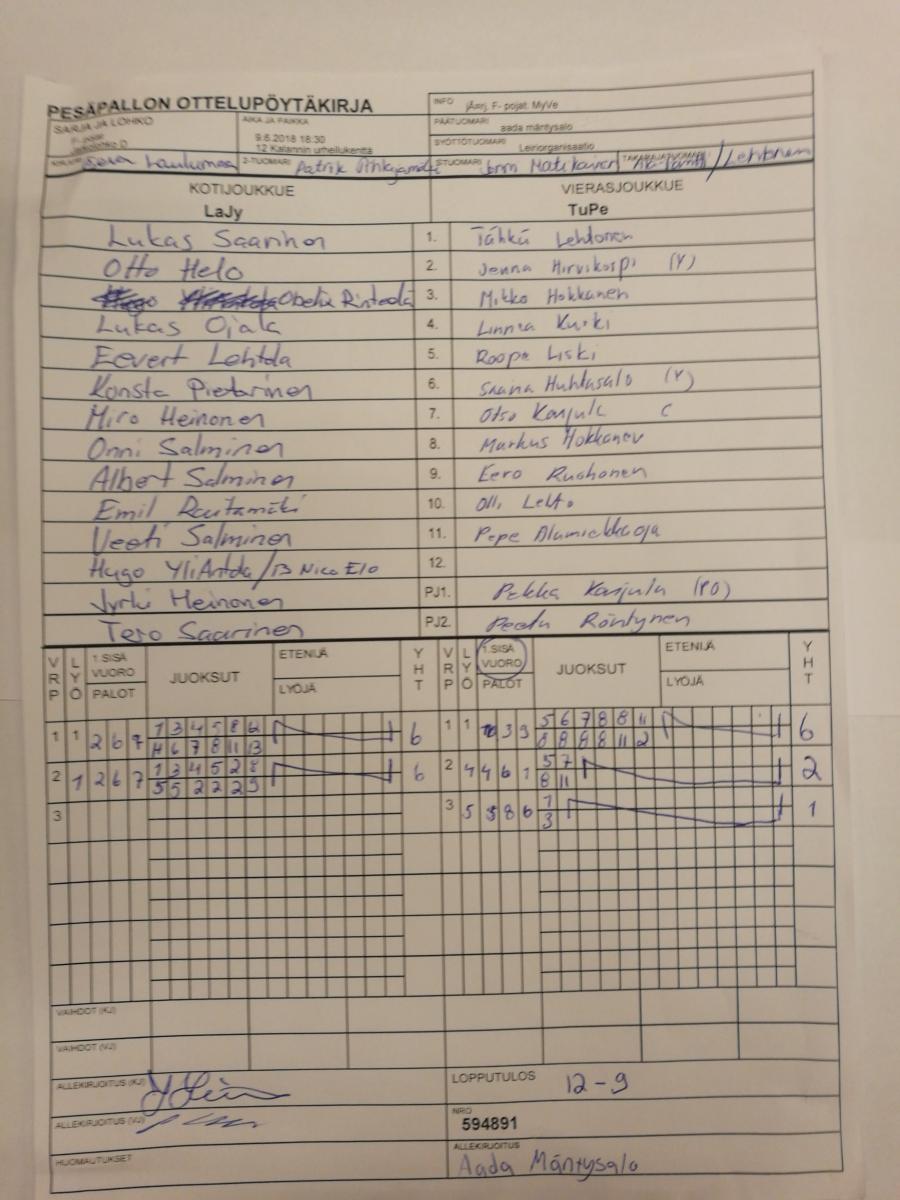 PESÄPALLON OTTELUPÖYTÄKIRJA
INFO jÄmj. F- pojat. MyVe
SARJA JA LOHKO
AIKA JA PAIKKA
9.6.2018 18:30
12 Kalannin urheilukenttä
PÄÄTUOMARI aada mäntysalo
SYÖTTÖTUOMARI Leiriorganisaatio
2-TUOMARI Patrik
3-TUOMARI Jenni Matikainen / Lehtonen
KOTIJOUKKUE VIERASJOUKKUE
LaJy TuPe
Lukas Saarinen 1. Tähkä Lehtonen
Otto Helo 2. Jenna Hirvikospi (Y)
Obelix Rintedä 3. Mikko Hokkanen
Lukas Ojala 4. Linnea Kurki
Eevert Lehtola 5. Roope Liski
Konsta Pietarinen 6. Saana Huhtasalo (Y)
Miro Heinonen 7. Otso Karjula C
Onni Salminen 8. Markus Hokkanen
Albert Salminen 9. Eero Ruohonen
Emil Rautamäki 10. Olli Lehto
Veeti Salminen 11. Pepe
Hugo / 13 Nico Elo 12.
Jyrki Heinonen PJ1. Pekka Karjula (PO)
Tero Saarinen PJ2. Peetu Röntynen
VRP LYÖ 1.SISÄ VUORO PALOT JUOKSUT ETENIJÄ LYÖJÄ YHT VRP LYÖ 1.SISÄ VUORO PALOT JUOKSUT ETENIJÄ LYÖJÄ YHT
1 1 2 6 7 1 3 4 5 8 6 6 1 1 3 9 5 6 7 8 8 11 6
4 6 7 8 11 13 8 8 8 8 11 2
2 1 2 6 7 1 3 4 5 2 8 6 2 4 4 6 1 5 7 2
5 5 2 2 2 9 8 11
3 3 5 8 6 1 1
3
VAIHDOT (KJ)
VAIHDOT (VJ)
ALLEKIRJOITUS (KJ) LOPPUTULOS 12-9
ALLEKIRJOITUS (VJ) NRO
594891
HUOMAUTUKSET ALLEKIRJOITUS
Aada Mäntysalo